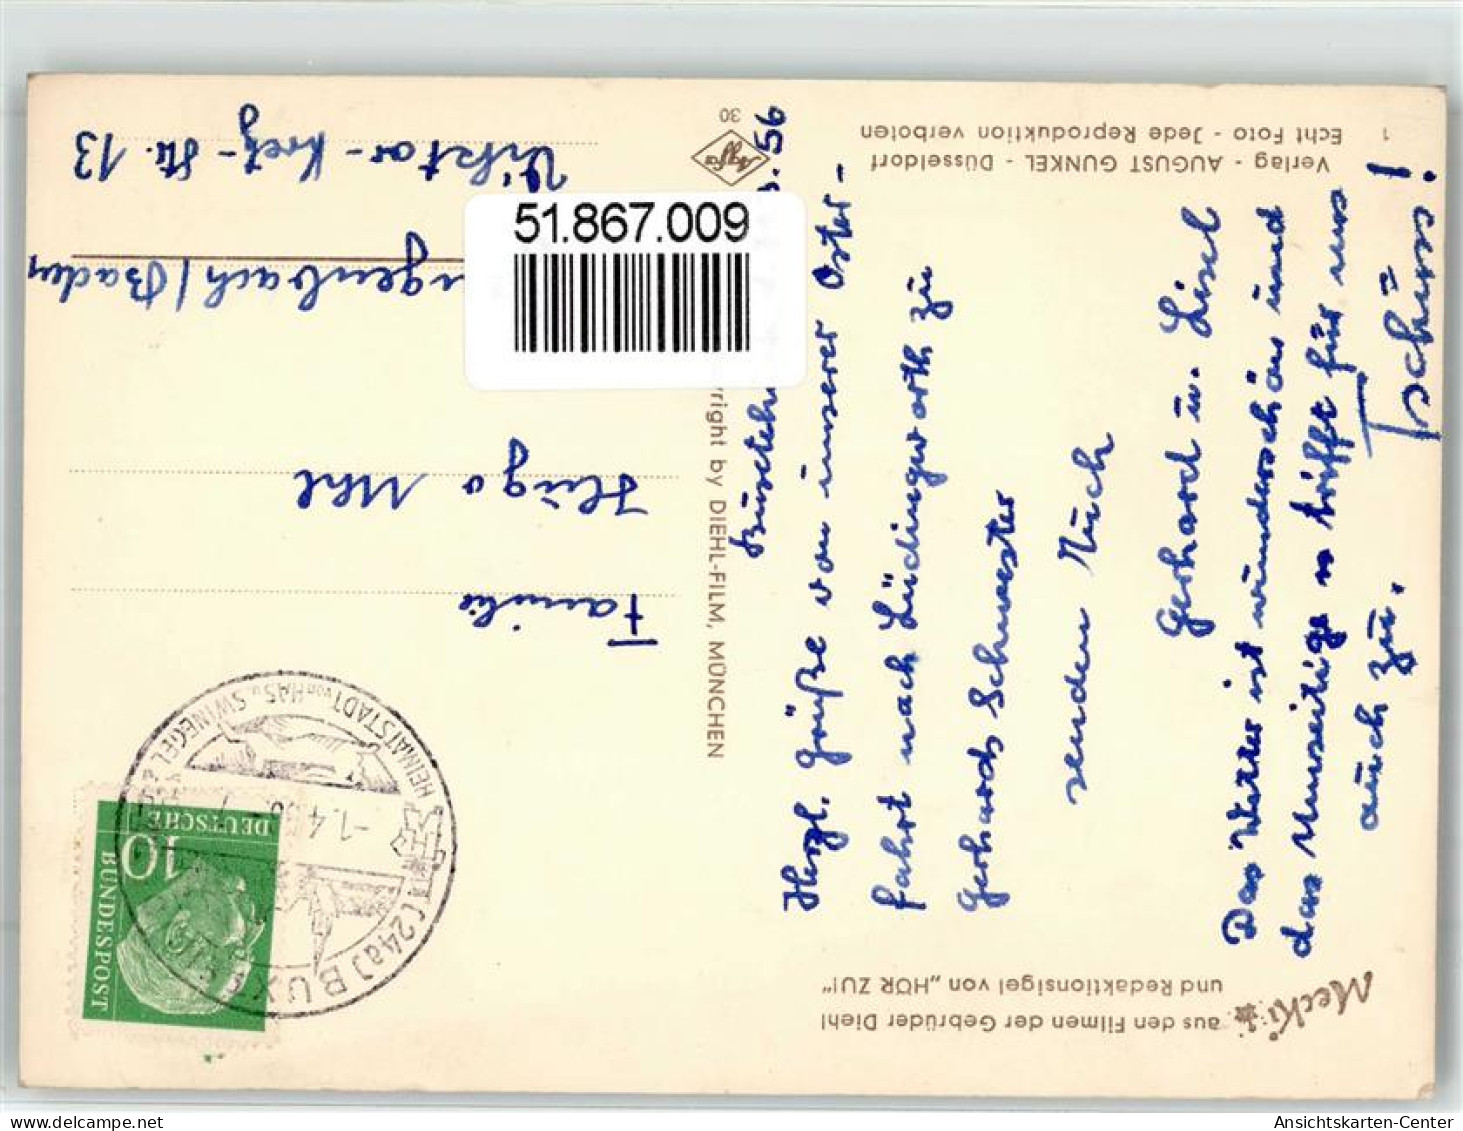 Mecki
aus den Filmen der Gebrüder Diehl
und Redaktionsigel von „HÖR ZU!"
Herzl. Grüße von unserer Oster-
fahrt nach Lüdingworth zu
Gerhards Schwester
senden Euch
Gerhard u. Lisel
Das Wetter ist wunderschön und
das trifft für uns
auch zu.
Tschüss!
Verlag - AUGUST GUNKEL - Düsseldorf
Echt Foto - Jede Reproduktion verboten
1
56
yright by DIEHL-FILM, MÜNCHEN
Agfa
30
10
DEUTSCHE
BUNDESPOST
(24a) BUX
HEIMATSTADT von HAS u. SWINEGEL
-1.4.56
Familie
Hugo Mehl
ngenbach / Baden
Viktor-Kretz-Str. 13
51.867.009
delcampe.net
Ansichtskarten-Center